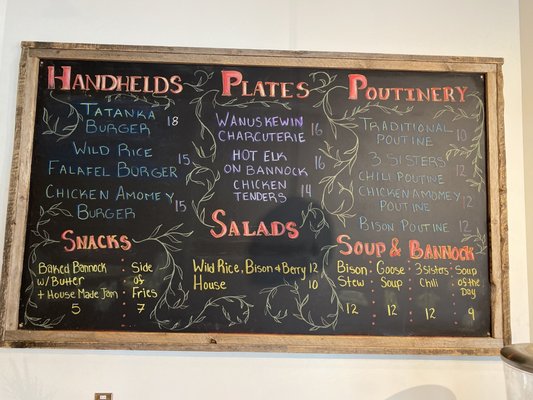 HANDHELDS
TATANKA
BURGER 18
WILD RICE
FALAFEL BURGER 15
CHICKEN AMOMEY
BURGER 15
PLATES
WANUSKEWIN
CHARCUTERIE 16
HOT ELK
ON BANNOCK 16
CHICKEN
TENDERS 14
POUTINERY
TRADITIONAL
POUTINE 10
3 SISTERS
CHILI POUTINE 12
CHICKEN AMOMEY
POUTINE 12
BISON POUTINE 12
SNACKS
Baked Bannock
w/Butter
+ House Made Jam
5
Side
of
Fries
7
SALADS
Wild Rice, Bison & Berry 12
House 10
SOUP & BANNOCK
Bison
Stew
12
Goose
Soup
12
3 Sisters
Chili
12
Soup
of the
Day
9